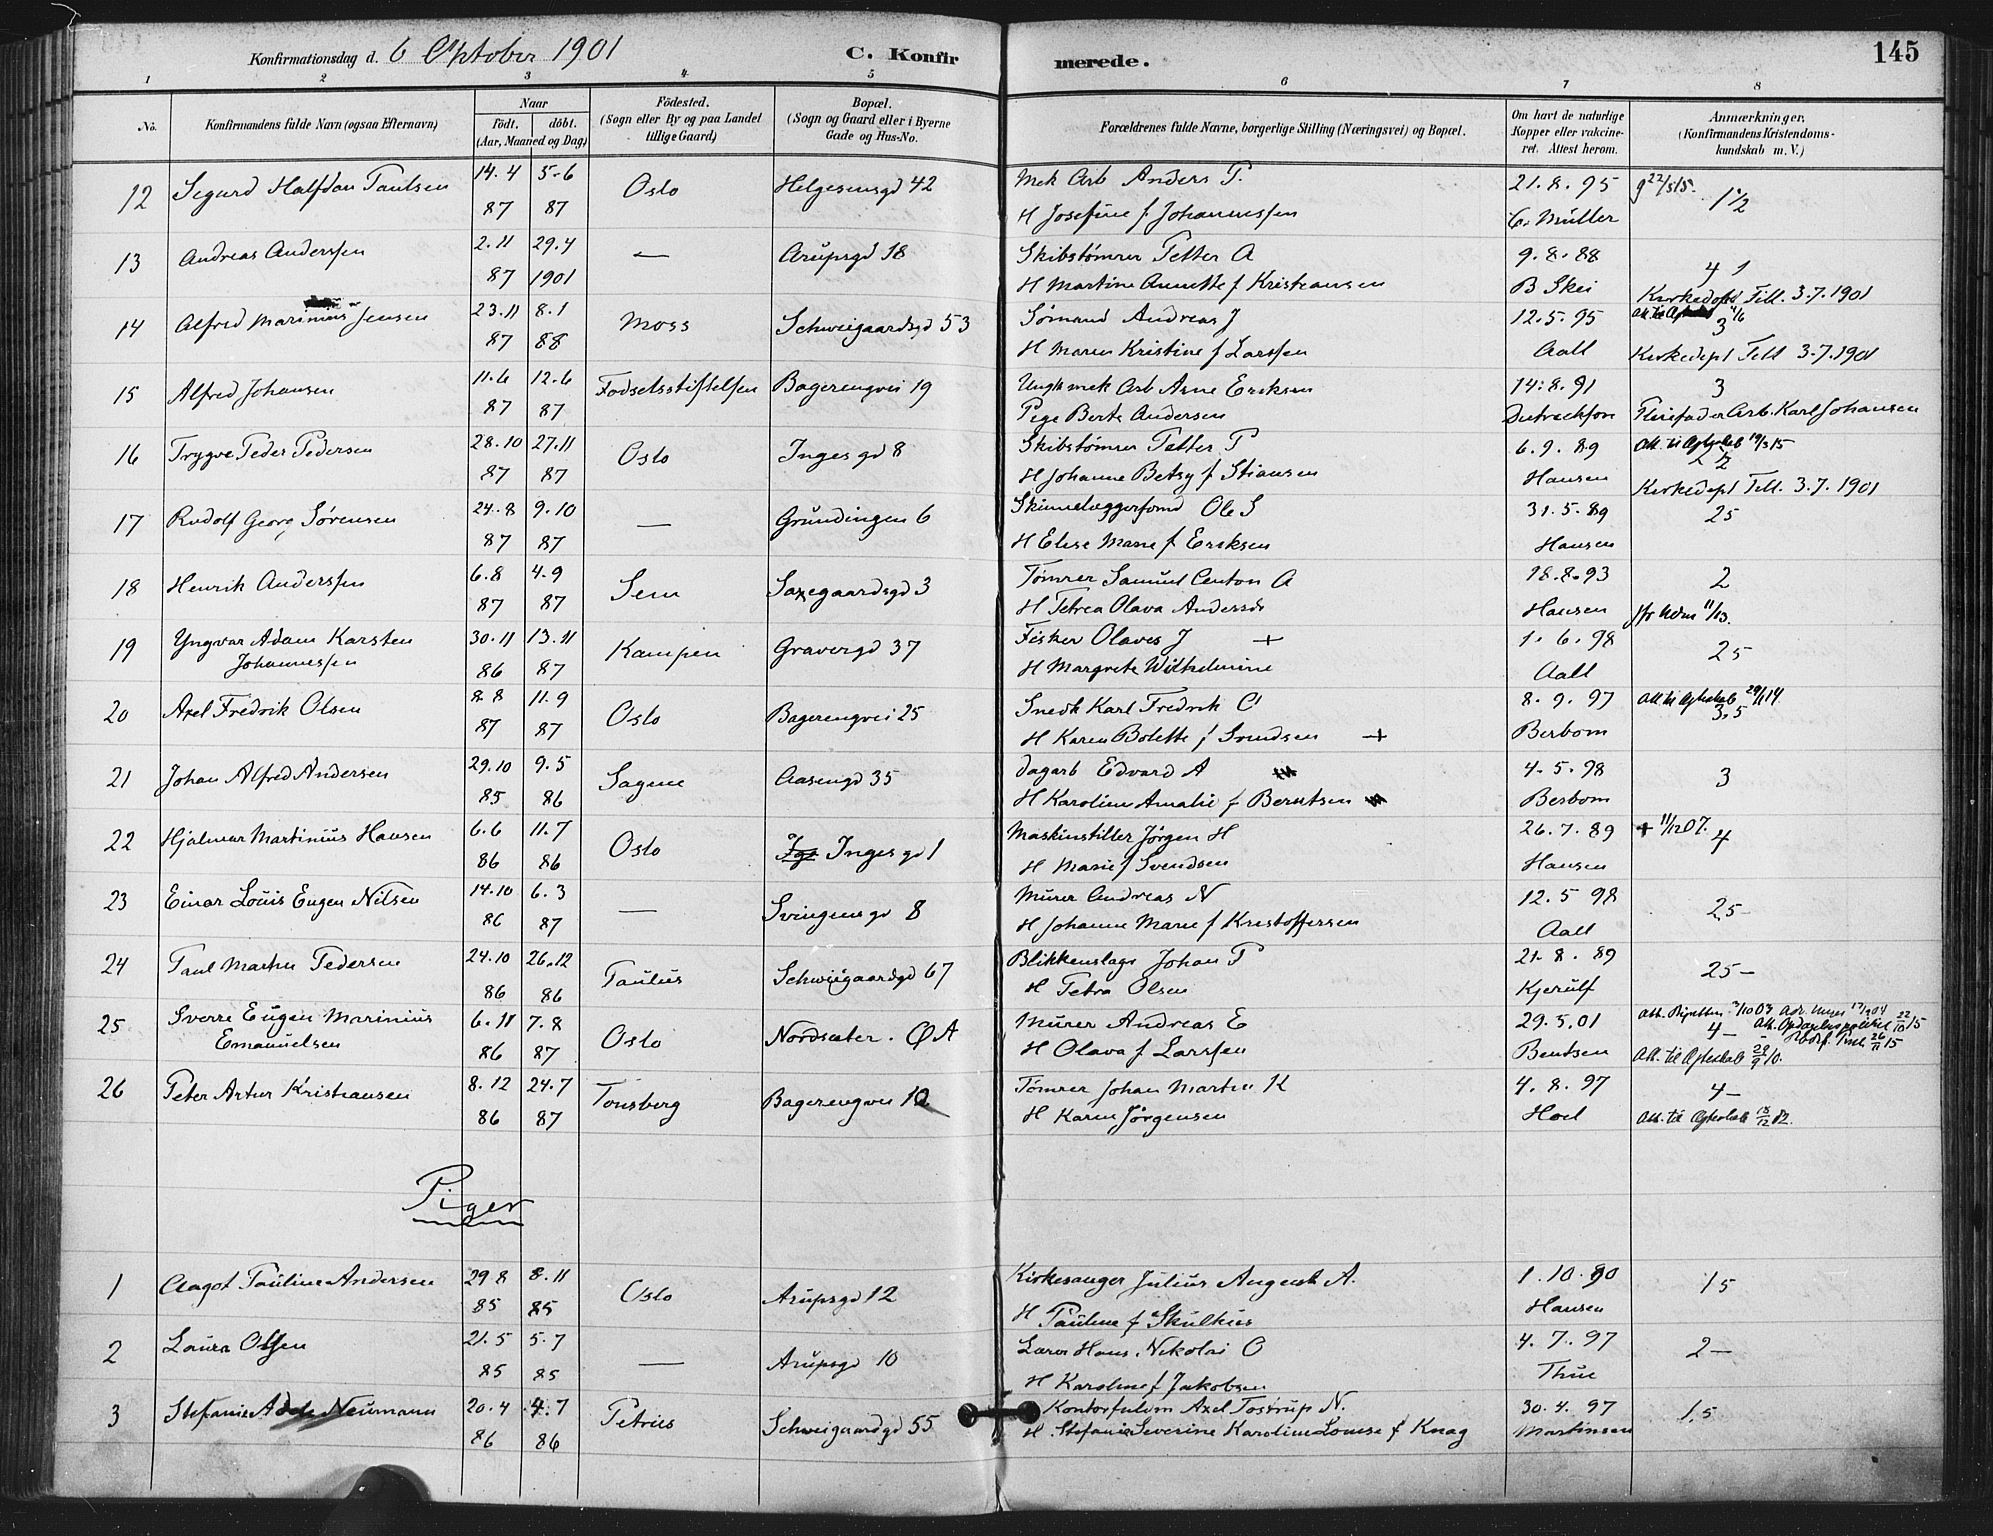 Konfirmationsdag d. 6 Oktober 1901 C. Konfirmerede. 145
1 2 3 4 5 6 7 8
No. Konfirmandens fulde Navn (ogsaa Efternavn) Naar Födt. döbt. (Aar, Maaned og Dag) Födested. (Sogn eller By og paa Landet tillige Gaard) Bopæl. (Sogn og Gaard eller i Byerne Gade og Hus-No. Forældrenes fulde Navne, borgerlige Stilling (Næringsvei) og Bopæl. Om havt de naturlige Kopper eller vakcineret. Attest herom. Anmærkninger. (Konfirmandens Kristendomskundskab m. V.)
12 Sigurd Halfdan Paulsen 14.4 5.6 Oslo Helgesensgd 42 Mek Arb Anders P. 21.8.95 g 22/5 15. 1½
87 87 H Josefine f Johannessen C. Müller
13 Andreas Anderssen 2.11 29.4 — Arupsgd 18 Skibstømrer Petter A 9.8.88 4
87 1901 H Martine Annette f Kristiansen B Skei Kirkedept Till. 3.7.1901
14 Alfred Marinius Jensen 23.11 8.1 Moss Schweigaardsgd 53 Sømand Andreas J 12.5.95 3
87 88 H Maren Kristine f Larssen Aall Kirkedept Till 3.7.1901
15 Alfred Johansen 11.6 12.6 Fødselsstiftelsen Bagerengvei 19 Ungk mek Arb Arne Eriksen 14.8.91 3
87 87 Pige Berte Andersen Plejefader Arb. Karl Johansen
16 Trygve Peder Pedersen 28.10 27.11 Oslo Inges gd 8 Skibstømrer Petter P 6.9.89
87 87 H Johanne Betsy f Stiansen Hansen Kirkedept Till. 3.7.1901
17 Rudolf Georg Sørensen 24.8 9.10 — Grundingen 6 Skinnelæggerformd Ole S 31.5.89 25
87 87 H Elise Marie f Eriksen Hansen
18 Henrik Anderssen 6.8 4.9 Sem Saxegaardsgd 3 Tømrer Samuel Centon A 18.8.93 2
87 87 H Petrea Olava Andersdr Hansen
19 Yngvar Adam Karsten 30.11 13.11 Kampen Gravergd 37 Fisker Olaves J + 1.6.98 25
Johannessen 86 87 H Margrete Wilhelmine Aall
20 Axel Fredrik Olsen 8.8 11.9 Oslo Bagerengvei 25 Snedk Karl Fredrik O 8.9.97 3,5
87 87 H Karen Bolette f Svendsen + Berbom
21 Johan Alfred Andersen 29.10 9.5 Sagene Aasengd 35 Dagarb Edvard A 4.5.98 3
85 86 H Karoline Amalie f Berntsen Berbom
22 Hjalmar Martinius Hansen 6.6 11.7 Oslo Inges gd 1 Maskinstiller Jørgen H 26.7.89 + 11/12 07. 4
86 86 H Marie f Svendsen Hansen
23 Einar Louis Eugen Nilsen 14.10 6.3 — Svingens gd 8 Murer Andreas N 12.5 98 2,5-
86 87 H Johanne Marie f Kristoffersen Aall
24 Paul Martin Pedersen 24.10 26.12 Paulus Schweigaardsgd 67 Blikkenslager Johan P 21.8.89 25-
86 86 H Petra Olsen Kjerulf
25 Sverre Eugen Marinius 6.11 7.8 Oslo Nordsæter. Ø A Murer Andreas E 29.5.01 4-
Emanuelsen 86 87 H Olava f Larssen Bentsen
26 Peter Artur Kristiansen 8.12 24.7 Tønsberg Bagerengvei 12 Tømrer Johan Martin K 4.8.97 4-
86 87 H Karen Jørgensen Hoel
Piger
1 Aagot Pauline Andersen 29.8 8.11 Oslo Arupsgd 12 Kirkesanger Julius August A. 1.10.90 15
85 85 H Pauline f Skulkies Hansen
2 Laura Olsen 21.5 5.7 — Arupsgd 10 Lærer Hans Nikolai O 4.7.97 2-
85 85 H Karoline f Jakobsen Thue
3 Stefanie Adele Neumann 20.4 4.7 Petrus Schweigaardsgd 55 Kontorfuldm Axel Tostrup N. 30.4.97 1,5
86 86 H. Stefanie Severine Karoline Louise f Knag Martinsen